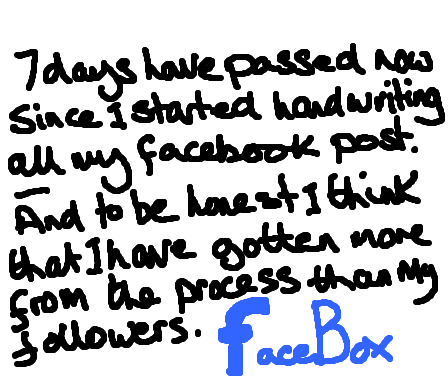 7 days have passed now
Since I started handwriting
all my facebook post.
And to be honest I think
that I have gotten more
from the process than My
followers.
FaceBox